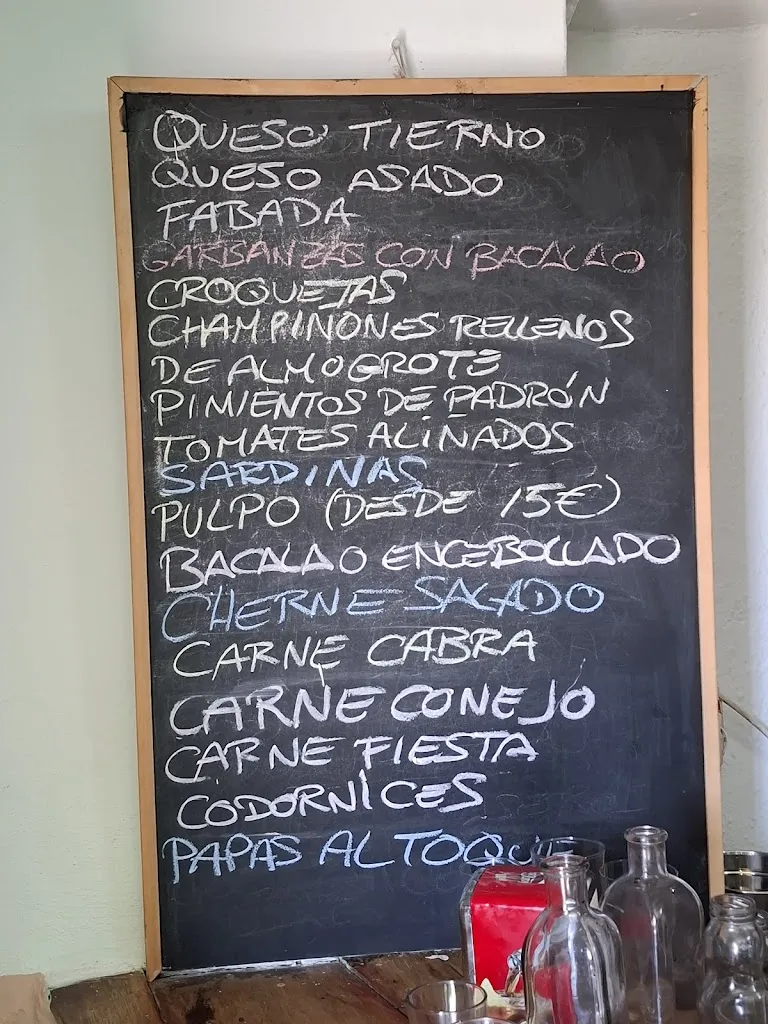 QUESO TIERNO
QUESO ASADO
FABADA
GARBANZAS CON BACALAO
CROQUETAS
CHAMPIÑONES RELLENOS
DE ALMOGROTE
PIMIENTOS DE PADRÓN
TOMATES ALIÑADOS
SARDINAS
PULPO (DESDE 15€)
BACALAO ENCEBOLLADO
CHERNE SALADO
CARNE CABRA
CARNE CONEJO
CARNE FIESTA
CODORNICES
PAPAS AL TOQUE